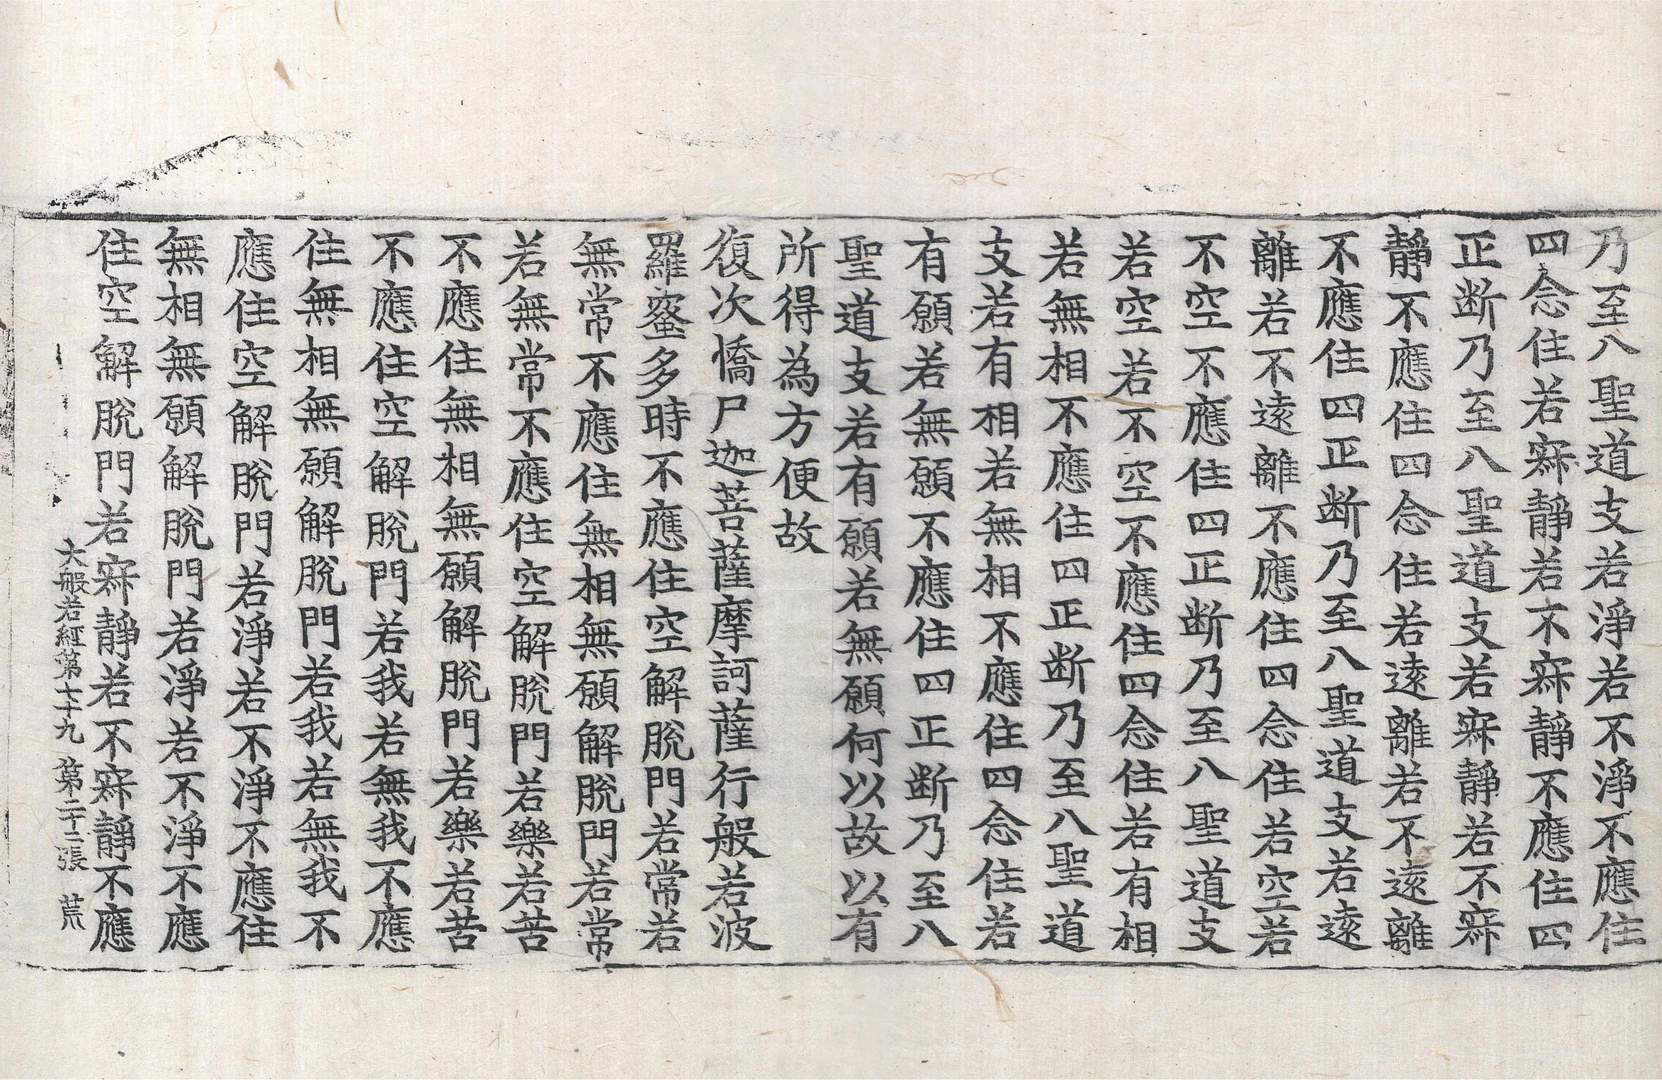 乃至八聖道支若淨若不淨不應住
四念住若寂靜若不寂靜不應住四
正断乃至八聖道支若寂靜若不寂
靜不應住四念住若遠離若不遠離
不應住四正断乃至八聖道支若遠
離若不遠離不應住四念住若空若
不空不應住四正断乃至八聖道支
若空若不空不應住四念住若有相
若無相不應住四正断乃至八聖道
支若有相若無相不應住四念住若
有願若無願不應住四正断乃至八
聖道支若有願若無願何以故以有
所得為方便故
復次憍尸迦菩薩摩訶薩行般若波
羅蜜多時不應住空解脫門若常若
無常不應住無相無願解脫門若常
若無常不應住空解脫門若樂若苦
不應住無相無願解脫門若樂若苦
不應住空解脫門若我若無我不應
住無相無願解脫門若我若無我不
應住空解脫門若淨若不淨不應住
無相無願解脫門若淨若不淨不應
住空解脫門若寂靜若不寂靜不應
大般若經第七十九 第二十二張 荒